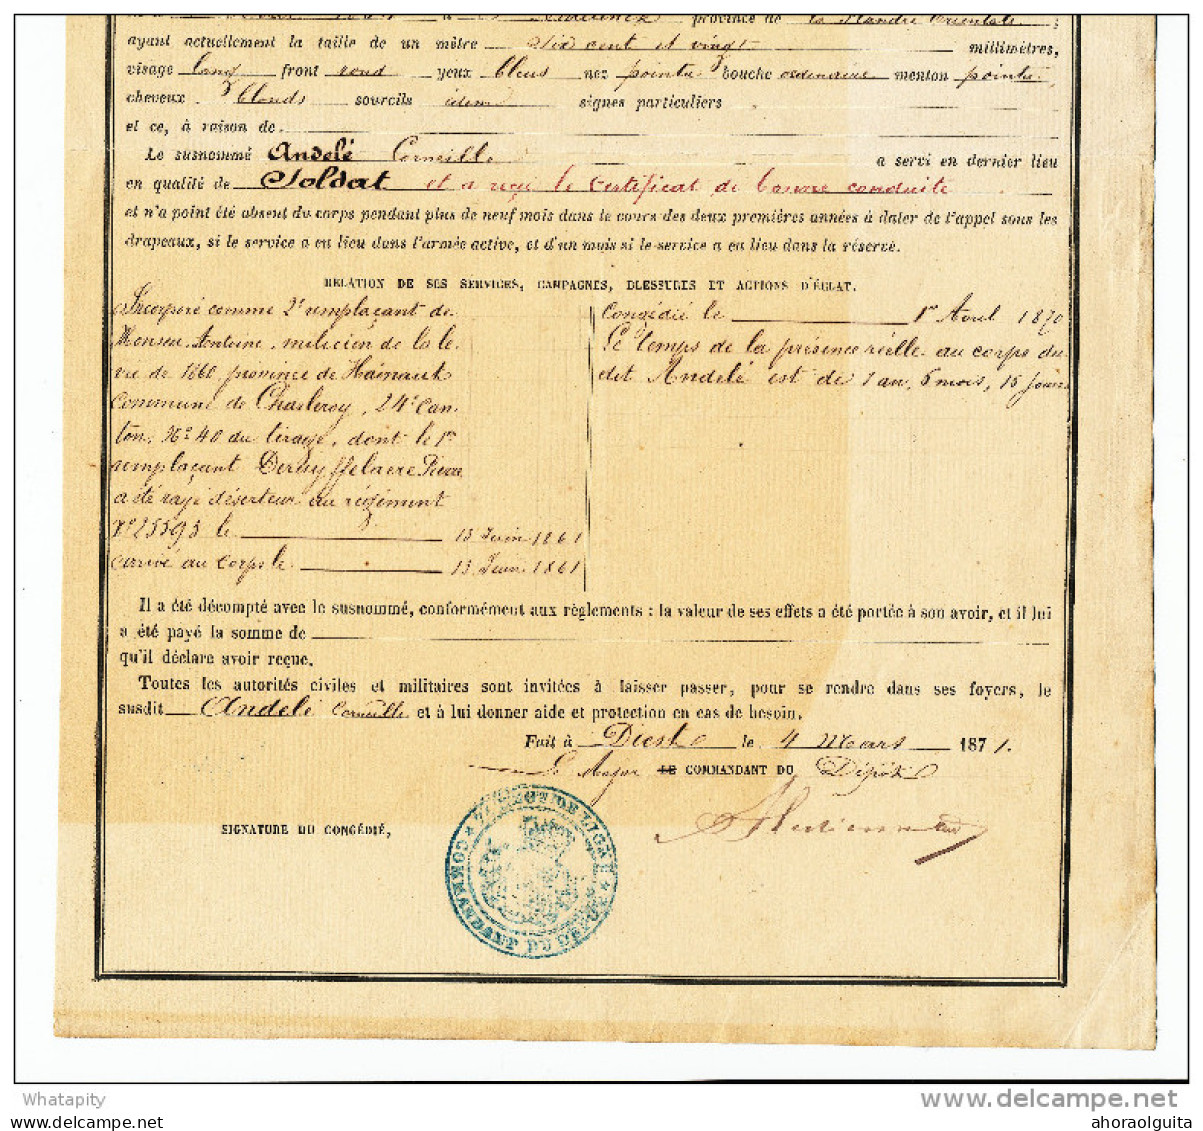 province de la Flandre Orientale ;
ayant actuellement la taille de un mètre six cent et vingt millimètres,
visage long front rond yeux bleus nez pointu bouche ordinaire menton pointu
cheveux blonds sourcils idem signes particuliers
et ce, à raison de
Le susnommé Andelé Corneille a servi en dernier lieu
en qualité de Soldat et a reçu le Certificat de bonne conduite
et n'a point été absent du corps pendant plus de neuf mois dans le cours des deux premières années à dater de l'appel sous les
drapeaux, si le service a eu lieu dans l'armée active, et d'un mois si le service a eu lieu dans la réserve.
RELATION DE SES SERVICES, CAMPAGNES, BLESSURES ET ACTIONS D'ÉCLAT.
Incorporé comme 2e remplaçant de
Antoine, milicien de la le
vée de 1860 province de Hainaut
commune de Charleroy, 24e Can-
ton, No 40 du tirage, dont le 1er
remplaçant Deruyffelaere Pierre
a été rayé déserteur au régiment
No 25593 le 13 Juin 1861
arrivé au corps le 13 Juin 1861
Congédié le 1er Avril 1870
Le temps de la présence réelle au corps du
dit Andelé est de 1 an, 6 mois, 15 jours
Il a été décompté avec le susnommé, conformément aux règlements : la valeur de ses effets a été portée à son avoir, et il lui
a été payé la somme de
qu'il déclare avoir reçue.
Toutes les autorités civiles et militaires sont invitées à laisser passer, pour se rendre dans ses foyers, le
susdit Andelé Corneille et à lui donner aide et protection en cas de besoin.
Fait à Diest le 4 Mars 1871.
Le Major LE COMMANDANT DU Dépôt
SIGNATURE DU CONGÉDIÉ,
REGT DE LIGNE
COMMANDANT DU DEPOT
Whatapity
delcampe.net
ahoraolguita